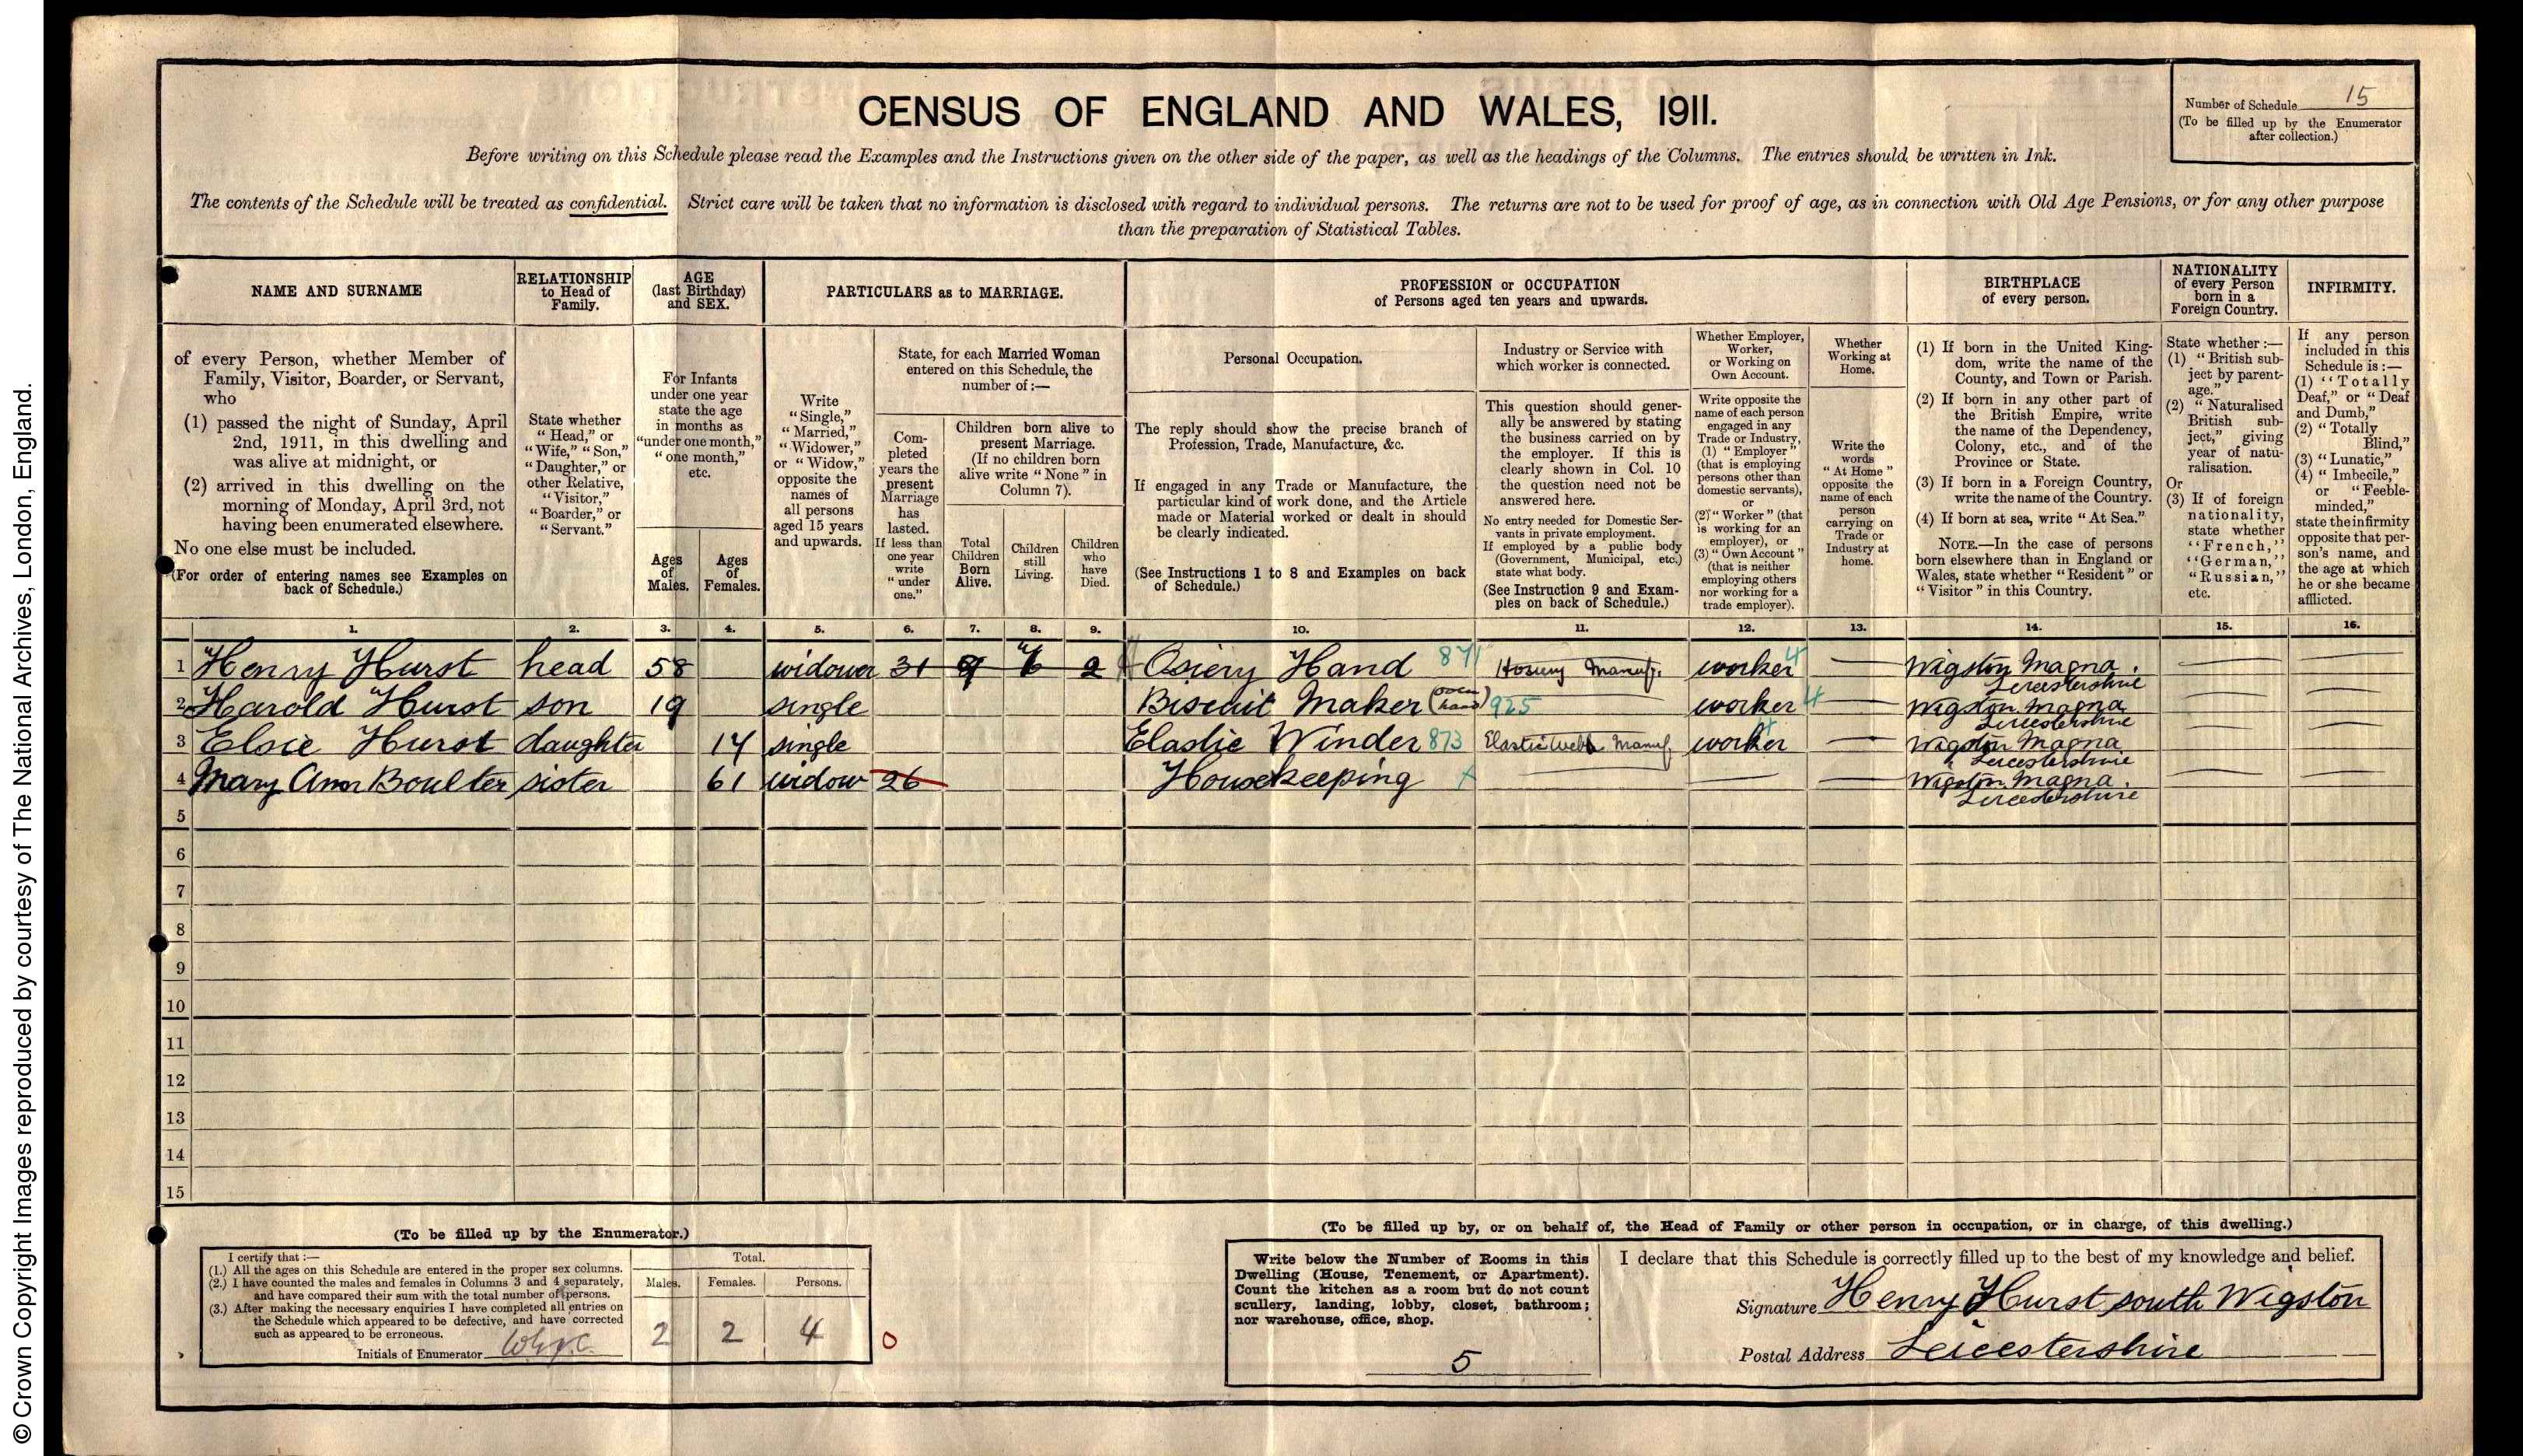 © Crown Copyright Images reproduced by courtesy of The National Archives, London, England.
CENSUS OF ENGLAND AND WALES, 1911.
Number of Schedule 15
(To be filled up by the Enumerator
after collection.)
Before writing on this Schedule please read the Examples and the Instructions given on the other side of the paper, as well as the headings of the Columns. The entries should be written in Ink.
The contents of the Schedule will be treated as confidential. Strict care will be taken that no information is disclosed with regard to individual persons. The returns are not to be used for proof of age, as in connection with Old Age Pensions, or for any other purpose
than the preparation of Statistical Tables.
NAME AND SURNAME
of every Person, whether Member of
Family, Visitor, Boarder, or Servant,
who
(1) passed the night of Sunday, April
2nd, 1911, in this dwelling and
was alive at midnight, or
(2) arrived in this dwelling on the
morning of Monday, April 3rd, not
having been enumerated elsewhere.
No one else must be included.
(For order of entering names see Examples on
back of Schedule.)
RELATIONSHIP
to Head of
Family.
State whether
"Head," or
"Wife," "Son,"
"Daughter," or
other Relative,
"Visitor,"
"Boarder," or
"Servant."
AGE
(last Birthday)
and SEX.
For Infants
under one year
state the age
in months as
"under one month,"
"one month,"
etc.
Ages
of
Males.
Ages
of
Females.
PARTICULARS as to MARRIAGE.
Write
"Single,"
"Married,"
"Widower,"
or "Widow,"
opposite the
names of
all persons
aged 15 years
and upwards.
State, for each Married Woman
entered on this Schedule, the
number of:—
Com-
pleted
years the
present
Marriage
has
lasted.
If less than
one year
write
"under
one."
Children born alive to
present Marriage.
(If no children born
alive write "None" in
Column 7).
Total
Children
Born
Alive.
Children
still
Living.
Children
who
have
Died.
PROFESSION or OCCUPATION
of Persons aged ten years and upwards.
Personal Occupation.
The reply should show the precise branch of
Profession, Trade, Manufacture, &c.
If engaged in any Trade or Manufacture, the
particular kind of work done, and the Article
made or Material worked or dealt in should
be clearly indicated.
(See Instructions 1 to 8 and Examples on back
of Schedule.)
Industry or Service with
which worker is connected.
This question should gener-
ally be answered by stating
the business carried on by
the employer. If this is
clearly shown in Col. 10
the question need not be
answered here.
No entry needed for Domestic Ser-
vants in private employment.
If employed by a public body
(Government, Municipal, etc.)
state what body.
(See Instruction 9 and Exam-
ples on back of Schedule.)
Whether Employer,
Worker,
or Working on
Own Account.
Write opposite the
name of each person
engaged in any
Trade or Industry,
(1) "Employer"
(that is employing
persons other than
domestic servants),
or
(2) "Worker" (that
is working for an
employer), or
(3) "Own Account"
(that is neither
employing others
nor working for a
trade employer).
Whether
Working at
Home.
Write the
words
"At Home"
opposite the
name of each
person
carrying on
Trade or
Industry at
home.
BIRTHPLACE
of every person.
(1) If born in the United King-
dom, write the name of the
County, and Town or Parish.
(2) If born in any other part of
the British Empire, write
the name of the Dependency,
Colony, etc., and of the
Province or State.
(3) If born in a Foreign Country,
write the name of the Country.
(4) If born at sea, write "At Sea."
NOTE.—In the case of persons
born elsewhere than in England or
Wales, state whether "Resident" or
"Visitor" in this Country.
NATIONALITY
of every Person
born in a
Foreign Country.
State whether:—
(1) "British sub-
ject by parent-
age."
(2) "Naturalised
British sub-
ject," giving
year of natu-
ralisation.
Or
(3) If of foreign
nationality,
state whether
"French,"
"German,"
"Russian,"
etc.
INFIRMITY.
If any person
included in this
Schedule is:—
(1) "Totally
Deaf," or "Deaf
and Dumb,"
(2) "Totally
Blind,"
(3) "Lunatic,"
(4) "Imbecile,"
or "Feeble-
minded,"
state the infirmity
opposite that per-
son's name, and
the age at which
he or she became
afflicted.
1. 2. 3. 4. 5. 6. 7. 8. 9. 10. 11. 12. 13. 14. 15. 16.
1 Henry Hurst head 58 widower 31 9 2 Osiery Hand 871 Hosiery Manuf. worker 4 Wigston Magna.
Leicestershire
2 Harold Hurst son 19 single Biscuit Maker (oven hand) 925 worker 4 Wigston Magna
Leicestershire
3 Elsie Hurst daughter 14 single Elastic Winder 873 Elastic Webb Manuf. worker 4 Wigston Magna
Leicestershire
4 Mary Ann Boulter sister 61 widow 26 Housekeeping Wigston Magna.
Leicestershire
5
6
7
8
9
10
11
12
13
14
15
(To be filled up by the Enumerator.)
I certify that:—
(1.) All the ages on this Schedule are entered in the proper sex columns.
(2.) I have counted the males and females in Columns 3 and 4 separately,
and have compared their sum with the total number of persons.
(3.) After making the necessary enquiries I have completed all entries on
the Schedule which appeared to be defective, and have corrected
such as appeared to be erroneous.
Initials of Enumerator
Total.
Males. Females. Persons.
2 2 4 0
(To be filled up by, or on behalf of, the Head of Family or other person in occupation, or in charge, of this dwelling.)
Write below the Number of Rooms in this
Dwelling (House, Tenement, or Apartment).
Count the kitchen as a room but do not count
scullery, landing, lobby, closet, bathroom;
nor warehouse, office, shop.
5
I declare that this Schedule is correctly filled up to the best of my knowledge and belief.
Signature Henry Hurst south Wigston
Postal Address Leicestershire